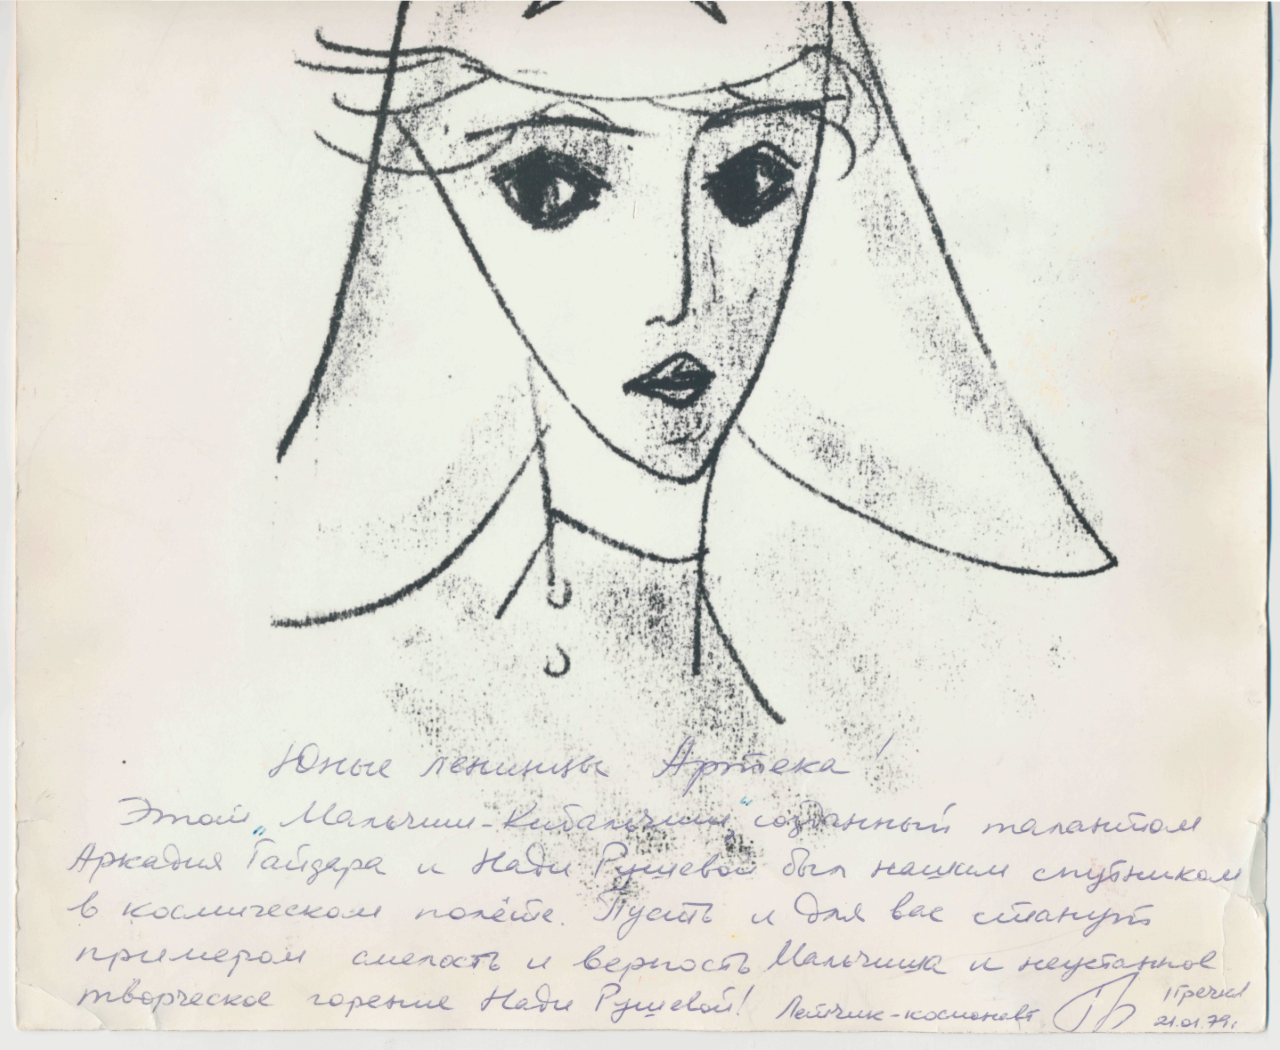 Юные ленинцы Артека!
Этот „Мальчиш-Кибальчиш" созданный талантом
Аркадия Гайдара и Нади Рушевой был нашим спутником
в космическом полёте. Пусть и для вас станут
примером смелость и верность Мальчиша и неустанное
творческое горение Нади Рушевой! Летчик-космонавт
Гречко
21.01.79г.